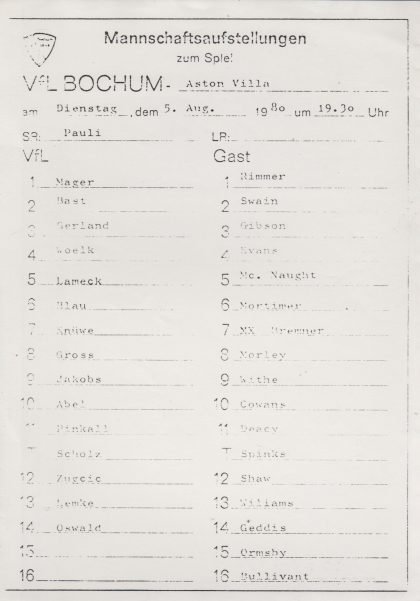 Mannschaftsaufstellungen
zum Spiel
VfL BOCHUM - Aston Villa
am Dienstag, dem 5. Aug. 1980 um 19.30 Uhr
SR: Pauli LR:
VfL Gast
1 Mager 1 Rimmer
2 Bast 2 Swain
3 Gerland 3 Gibson
4 Woelk 4 Evans
5 Lameck 5 Mc. Naught
6 Blau 6 Mortimer
7 Knüwe 7 XX Bremner
8 Gross 8 Morley
9 Jakobs 9 Withe
10 Abel 10 Cowans
11 Pinkall 11 Deacy
T Scholz T Spinks
12 Zugcic 12 Shaw
13 Lemke 13 Wiliams
14 Oswald 14 Geddis
15 15 Ormsby
16 16 Bullivant